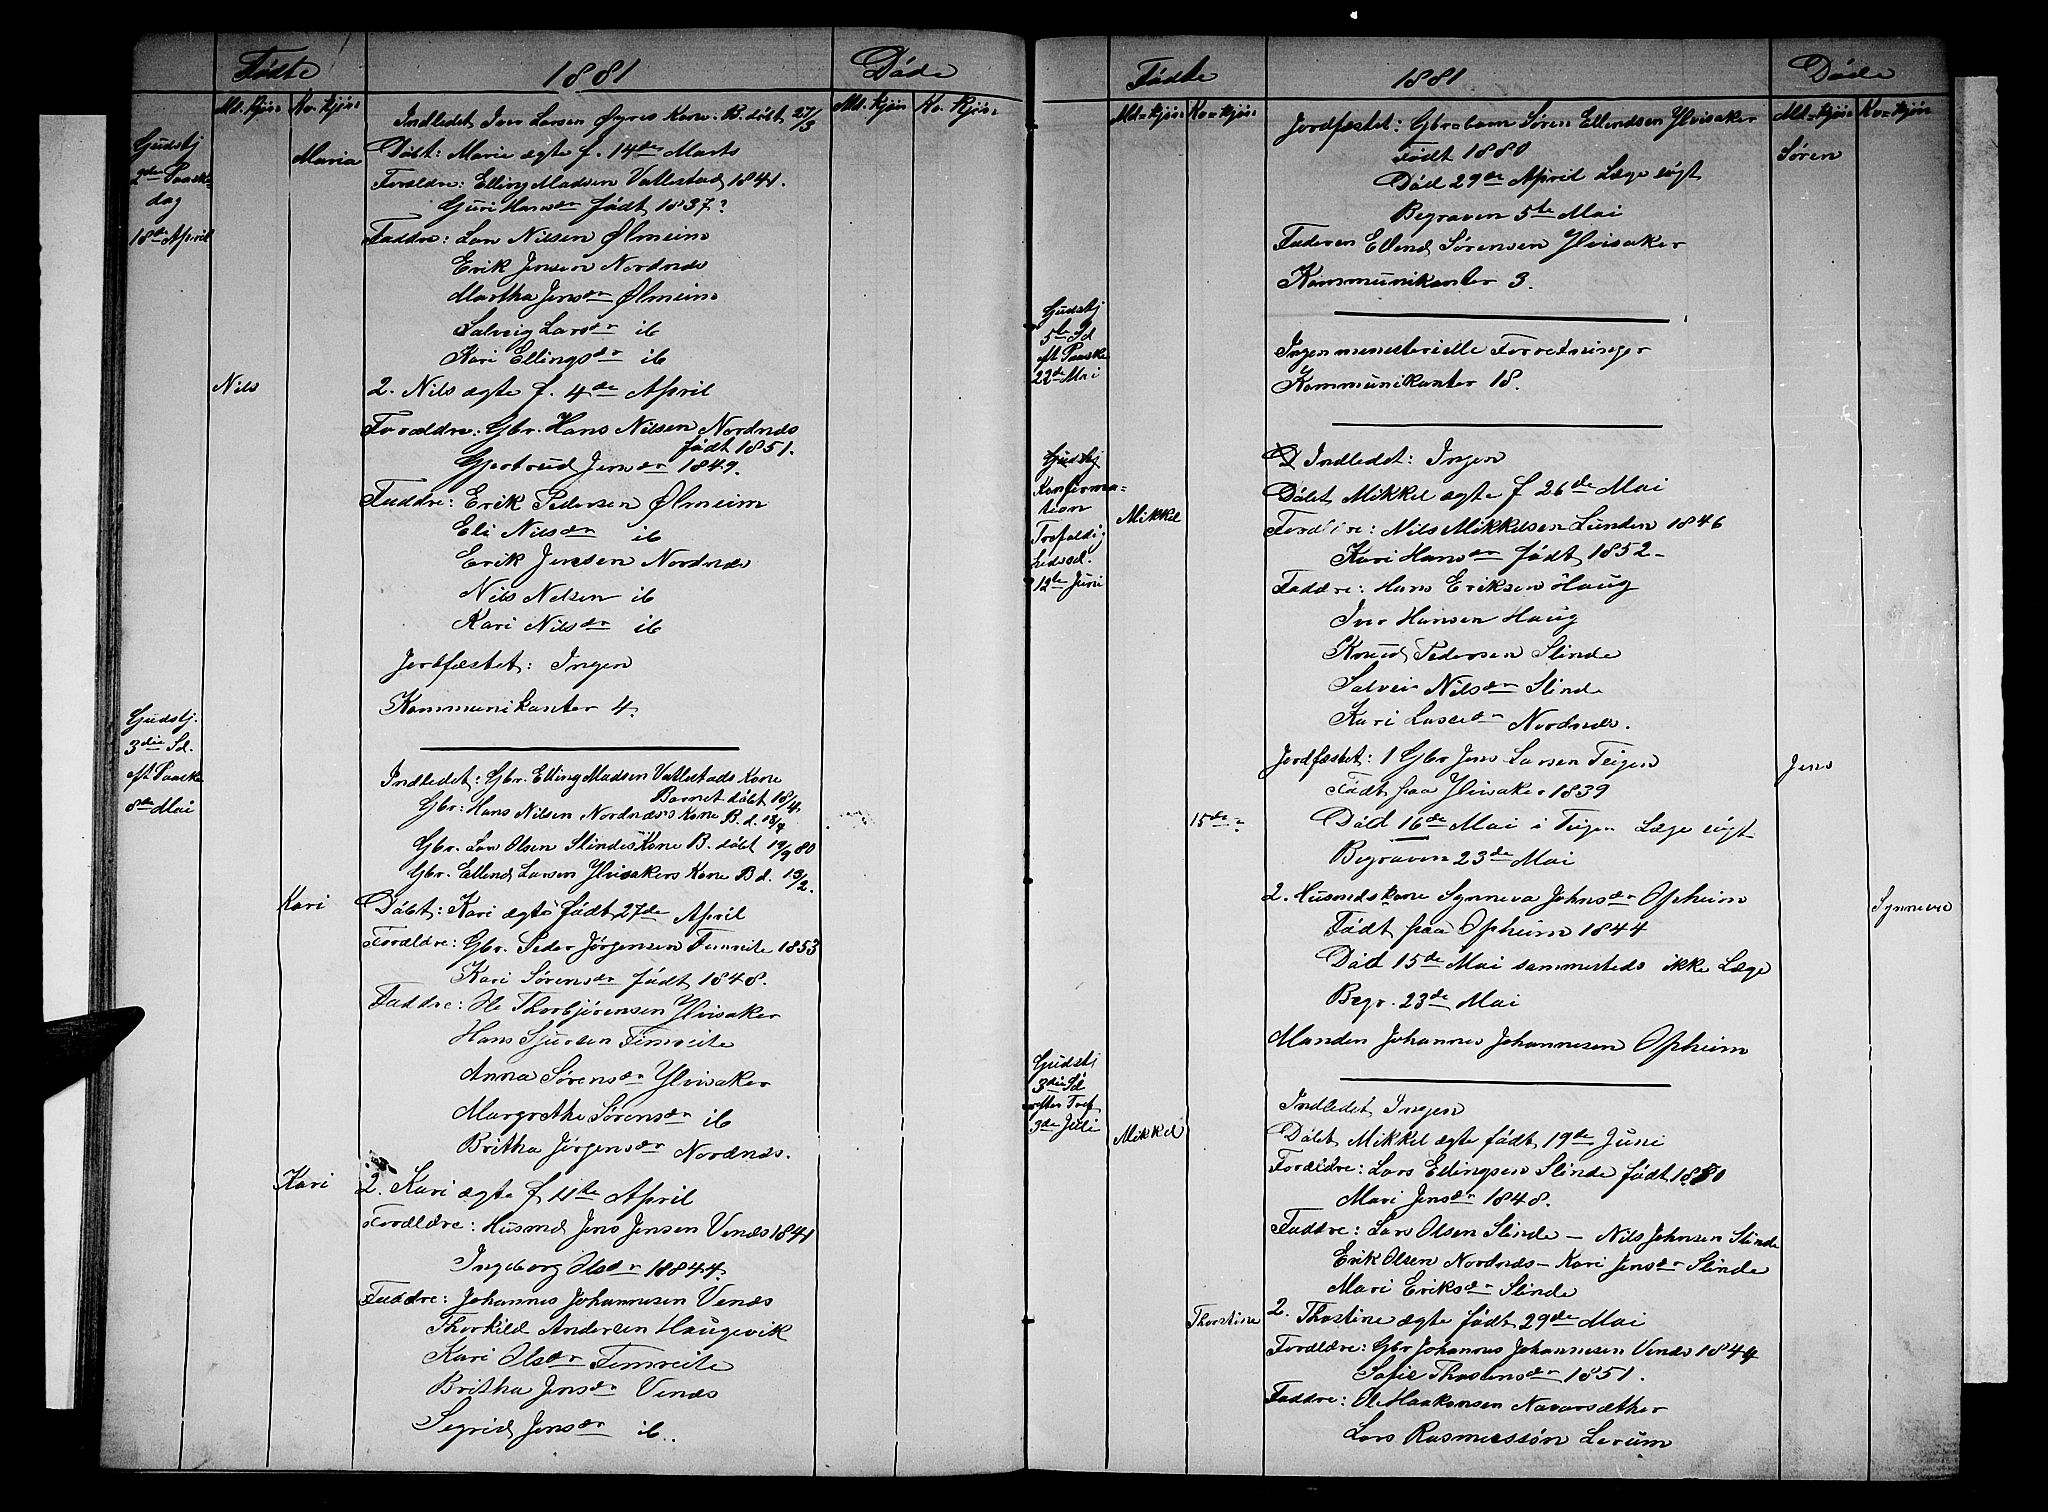 Fødte 1881 Døde
Md. kjøn Kv. kjøn Md. kjøn Kv. kjøn
Indledet Iver Larsen Øyres Kone. B. døbt 27/3
Gudstj
2den Paaske
dag
18de April
Maria
Døbt: Marie ægte f. 14de Marts
Forældre: Elling Madsen Vallestad 1841.
Guri Hansdr født 1837?
Faddre: Lars Nilsen Ølmeim
Erik Jensen Nordnæs
Martha Jensdr Ølmeim
Salveig Larsdr ib
Kari Ellingsdr ib
Nils
2. Nils ægte f. 4de April
Forældre: Gbr. Hans Nilsen Nordnæs
født 1851.
Gjertrud Jensdr 1849.
Faddre: Erik Pedersen Ølmeim
Eli Nilsdr ib
Erik Jensen Nordnæs
Nils Nilsen ib
Kari Nilsdr ib
Jordfæstet: Ingen
Kommunikanter 4.
Gudstj.
3die Sd.
eft Paaske
8de Mai
Indledet: Gbr. Elling Madsen Vallestads Kone
Barnet døbt 18/4.
Gbr: Hans Nilsen Nordnæs Kone B. d. 18/4
Gbr. Lars Olsen Slindes Kone B. døbt 19/9 80
Gbr. Ellend Larsen Ylvisakers Kone B d. 13/2.
Kari
Døbt: Kari ægte født 27de April
Forældre: Gbr. Peder Jørgensen Fimreite 1853
Kari Sørensdr født 1848.
Faddre: Ole Thorbjørensen Ylvisaker
Hans Sjursen Fimreite
Anna Sørensdr Ylvisaker
Margrethe Sørensdr ib
Britha Jørgensdr Nordnæs.
Kari
2. Kari ægte f 11te April
Forældre: Husmd Jens Jensen Venæs 1841
Ingeborg Olsdr 18844.
Faddre: Johannes Johannesen Venæs
Thorkild Andersen Haugevik
Kari Olsdr Fimreite
Britha Jensdr Venæs
Segrid Jensdr ib.
Fødte 1881 Døde
Md=kjøn Kv=kjøn Md=kjøn Kv=kjøn
Jordfæstet: Gbr=barn Søren Ellendsen Ylvisaker
Søren
Født 1880
Død 29de April Læge søgt
Begraven 5te Mai
Faderen Ellend Sørensen Ylvisaker
Kommunikanter 3.
Gudstj
5te Sd
eft Paaske
22de Mai
Ingen menesterielle Forretninger
Kommunikanter 18.
Gudstj
Konfirma-
tion
Trefoldig
hedssd.
12te Juni
Indledet: Ingen
Mikkel
Døbt Mikkel ægte f 26de Mai
Forældre: Nils Mikkelsen Lunden 1846
Kari Hansdr født 1852-
Faddre: Hans Eriksen Haug
Iver Hansen Haug
Knud Pedersen Slinde
Salvei Nilsdr Slinde
Kari Lassedr Nordnæs.
Jordfæstet: 1 Gbr Jens Larsen Teigen
Jens
Født paa Ylvisaker 1839
15de
Død 16de Mai i Teigen Læge søgt
Begraven 23de Mai
2. Husmdskone Synneva Johnsdr Opheim
Synneva
Født paa Opheim 1844
Død 15de Mai sammesteds ikke Læge
Begr. 23de Mai
Manden Johannes Johannesen Opheim
Gudstj
3die Sd
efter Tref
3de Juli
Indledet Ingen
Mikkel
Døbt Mikkel ægte født 19de Juni
Forældre: Lars Ellingsen Slinde født 1850
Mari Jensdr 1848.
Faddre: Lars Olsen Slinde - Nils Johnsen Slinde
Erik Olsen Nordnæs - Kari Jensdr Slinde
Mari Eriksdr Slinde
Thorstine
2. Thostine ægte født 29de Mai
Forældre: Gbr Johannes Johannesen Venæs 1844
Sofie Thostensdr 1851.
Faddre: Ole Haakensen Navarsæther
Lars Rasmussøn Lerum